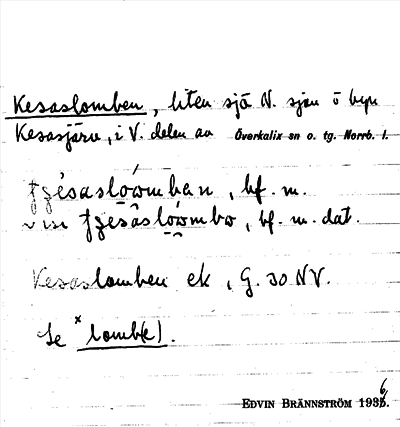 Kesaslomben, liten sjö N. sjön o byn
Kesasjärv, i V. delen av Överkalix sn o. tg. Norrb. l.
bf. m.
bf. m. dat.
Kesaslomben ek, G. 30 NV.
Se ˣlomb(e).
EDVIN BRÄNNSTRÖM 1936.